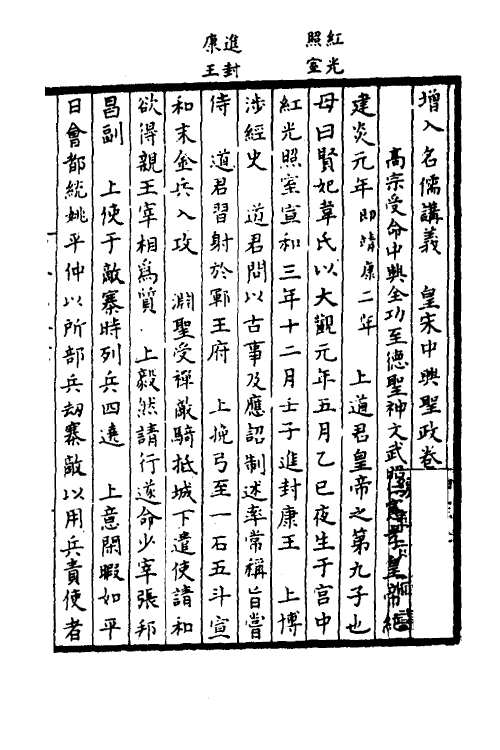 紅光
照室
進封
康王
增入名儒講義　皇宋中興聖政卷
高宗受命中興全功至德聖神文武昭仁憲孝皇帝紀
建炎元年即靖康二年　上道君皇帝之第九子也
母曰賢妃韋氏以大觀元年五月乙巳夜生于宮中
紅光照室宣和三年十二月壬子進封康王　上博
涉經史　道君問以古事及應詔制述率常稱旨嘗
侍　道君習射於鄆王府　上挽弓至一石五斗宣
和末金兵入攻　淵聖受禪敵騎抵城下遣使請和
欲得親王宰相爲質　上毅然請行遂命少宰張邦
昌副　上使于敵寨時列兵四遶　上意閑暇如平
日會都統姚平仲以所部兵刼寨敵以用兵責使者